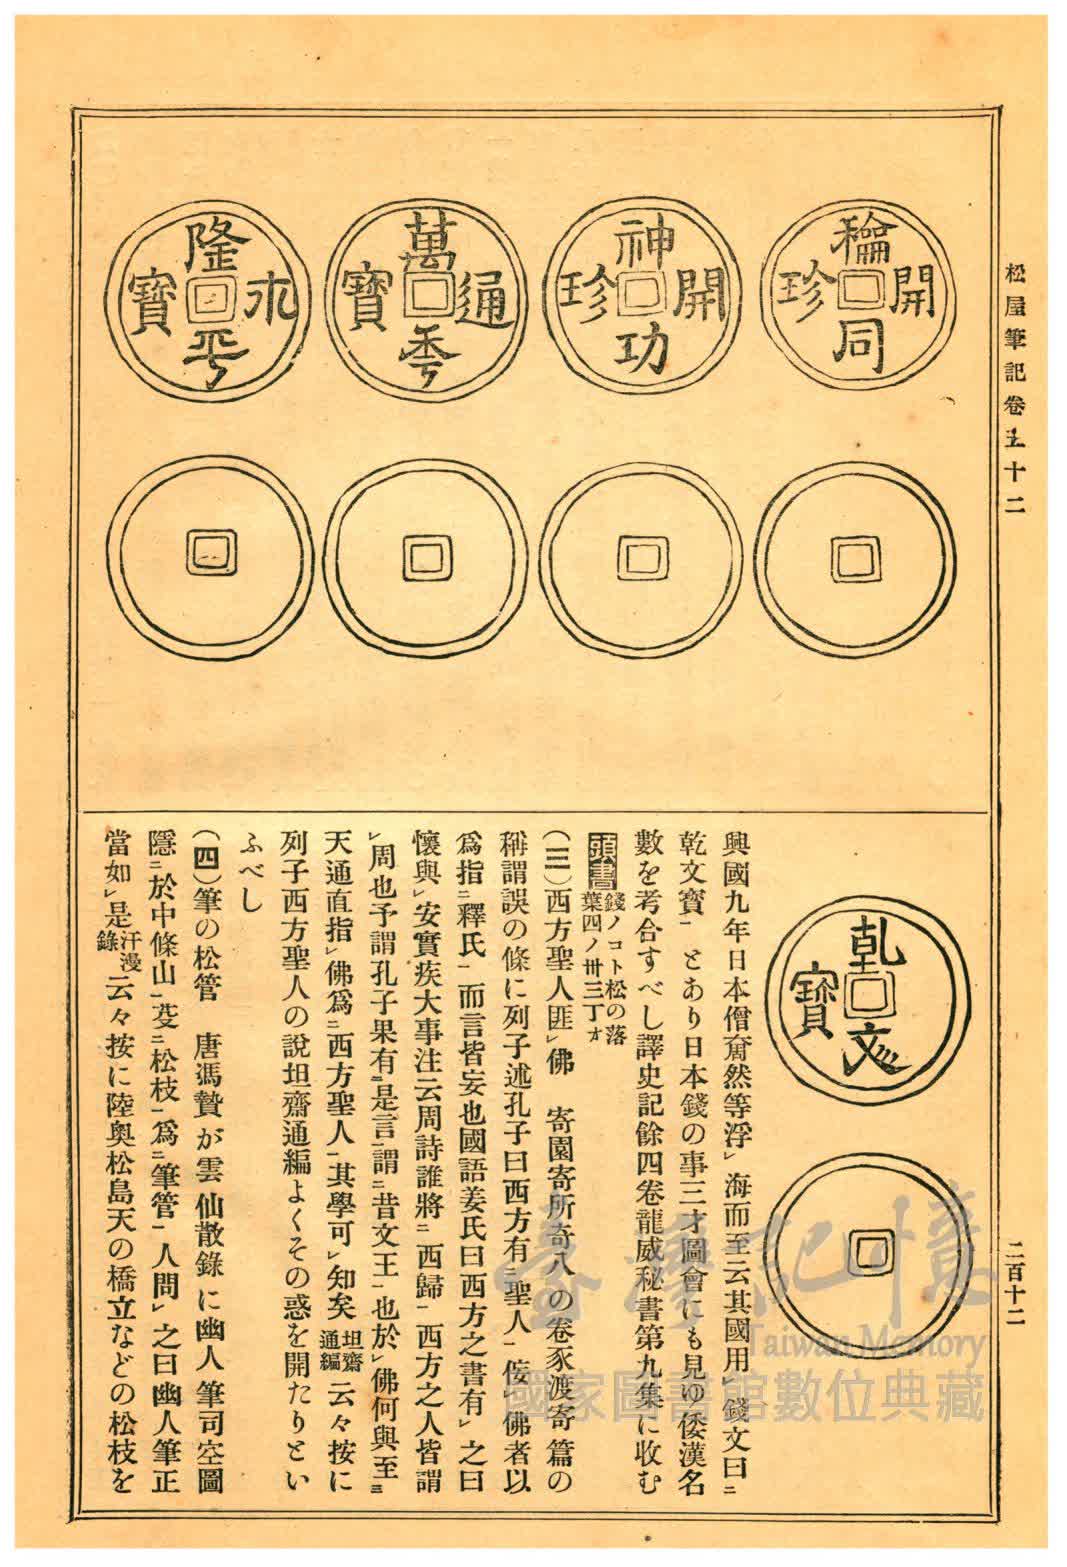 松屋筆記卷五十二
二百十二
稐開同珍
神開功珍
萬通秊寶
隆永平寶
乾文寶
興國九年日本僧奝然等浮レ海而至云其國用レ錢文曰ニ
乾文寶一とあり日本錢の事三才圖會にも見ゆ倭漢名
數を考合すべし譯史記餘四卷龍威秘書第九集に收む
頭書 錢ノコト松の落
葉四ノ卅三丁オ
(三)西方聖人匪レ佛 寄園寄所寄八の卷豕渡寄篇の
稱謂誤の條に列子述孔子曰西方有ニ聖人一佞レ佛者以
爲指ニ釋氏一而言皆妄也國語姜氏曰西方之書有レ之曰
懷與レ安實疾大事注云周詩誰將ニ西歸一西方之人皆謂
レ周也予謂孔子果有ニ是言一謂ニ昔文王一也於レ佛何與至三
天通直指レ佛爲ニ西方聖人一其學可レ知矣坦齋通編云々按に
列子西方聖人の說坦齋通編よくその惑を開たりとい
ふべし
(四)筆の松管 唐馮贄が雲仙散錄に幽人筆司空圖
隱ニ於中條山一芟ニ松枝一爲ニ筆管一人問レ之曰幽人筆正
當如レ是汗漫錄云々按に陸奧松島天の橋立などの松枝を
臺灣記憶
Taiwan Memory
國家圖書館數位典藏